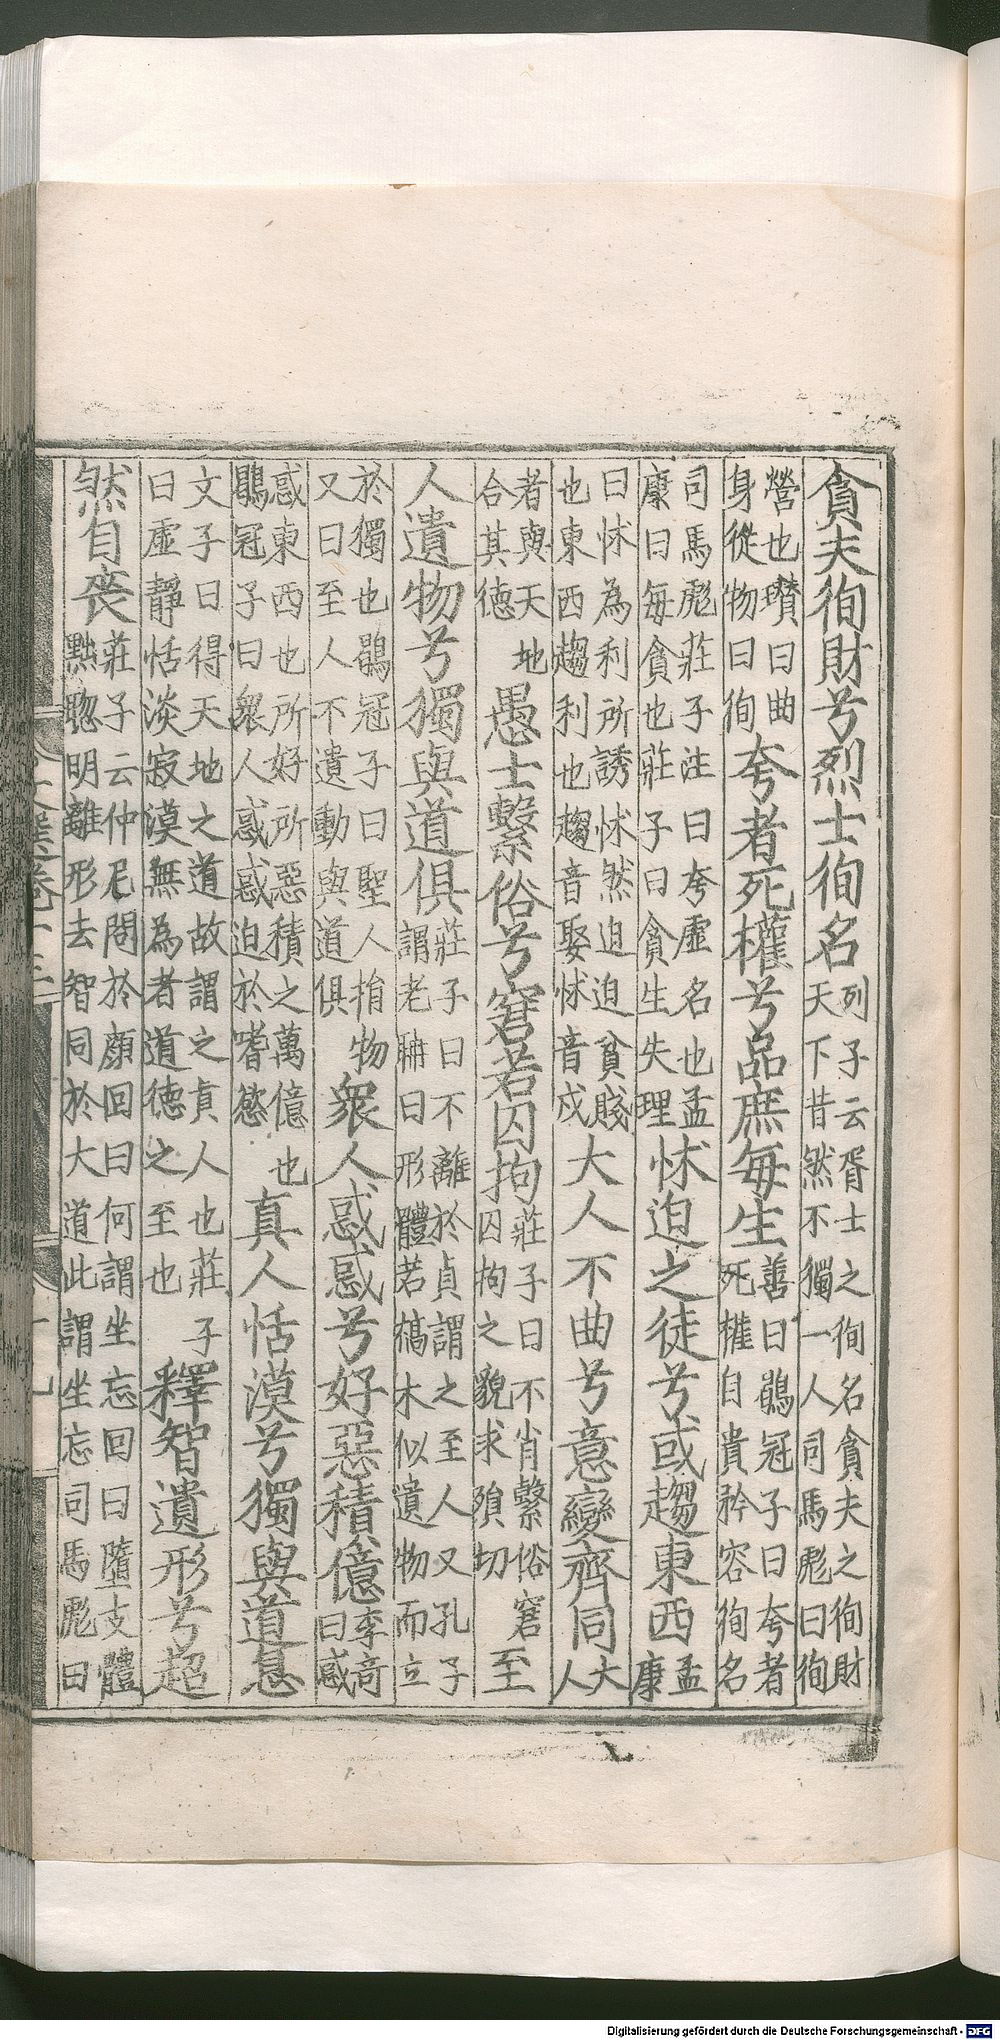 貪夫徇財兮烈士徇名列子云胥士之徇名貪夫之徇財天下昔然不獨一人司馬彪曰徇
營也瓚曰曲身從物曰徇夸者死權兮品庶每生善曰鶡冠子曰夸者死權自貴矜容徇名
司馬彪莊子注曰夸虛名也孟康曰每貪也莊子曰貪生失理怵迫之徒兮或趨東西孟康
曰怵為利所誘怵然迫迫貧賤也東西趨利也趨音娶怵音戍大人不曲兮意變齊同大人
者與天地合其德愚士繫俗兮窘若囚拘莊子曰不肖繫俗窘囚拘之貌求隕切至
人遺物兮獨與道俱莊子曰不離於貞謂之至人又孔子謂老聃曰形體若槁木似遺物而立
於獨也鶡冠子曰聖人捐物又曰至人不遺動與道俱衆人惑惑兮好惡積億李奇曰惑
惑東西也所好所惡積之萬億也鶡冠子曰衆人惑惑迫於嗜慾真人恬漠兮獨與道息
文子曰得天地之道故謂之真人也莊子曰虛靜恬淡寂漠無為者道德之至也釋智遺形兮超
然自喪莊子云仲尼問於顏回曰何謂坐忘回曰墮支體黜聰明離形去智同於大道此謂坐忘司馬彪曰
文選卷十三
十九
Digitalisierung gefördert durch die Deutsche Forschungsgemeinschaft - DFG